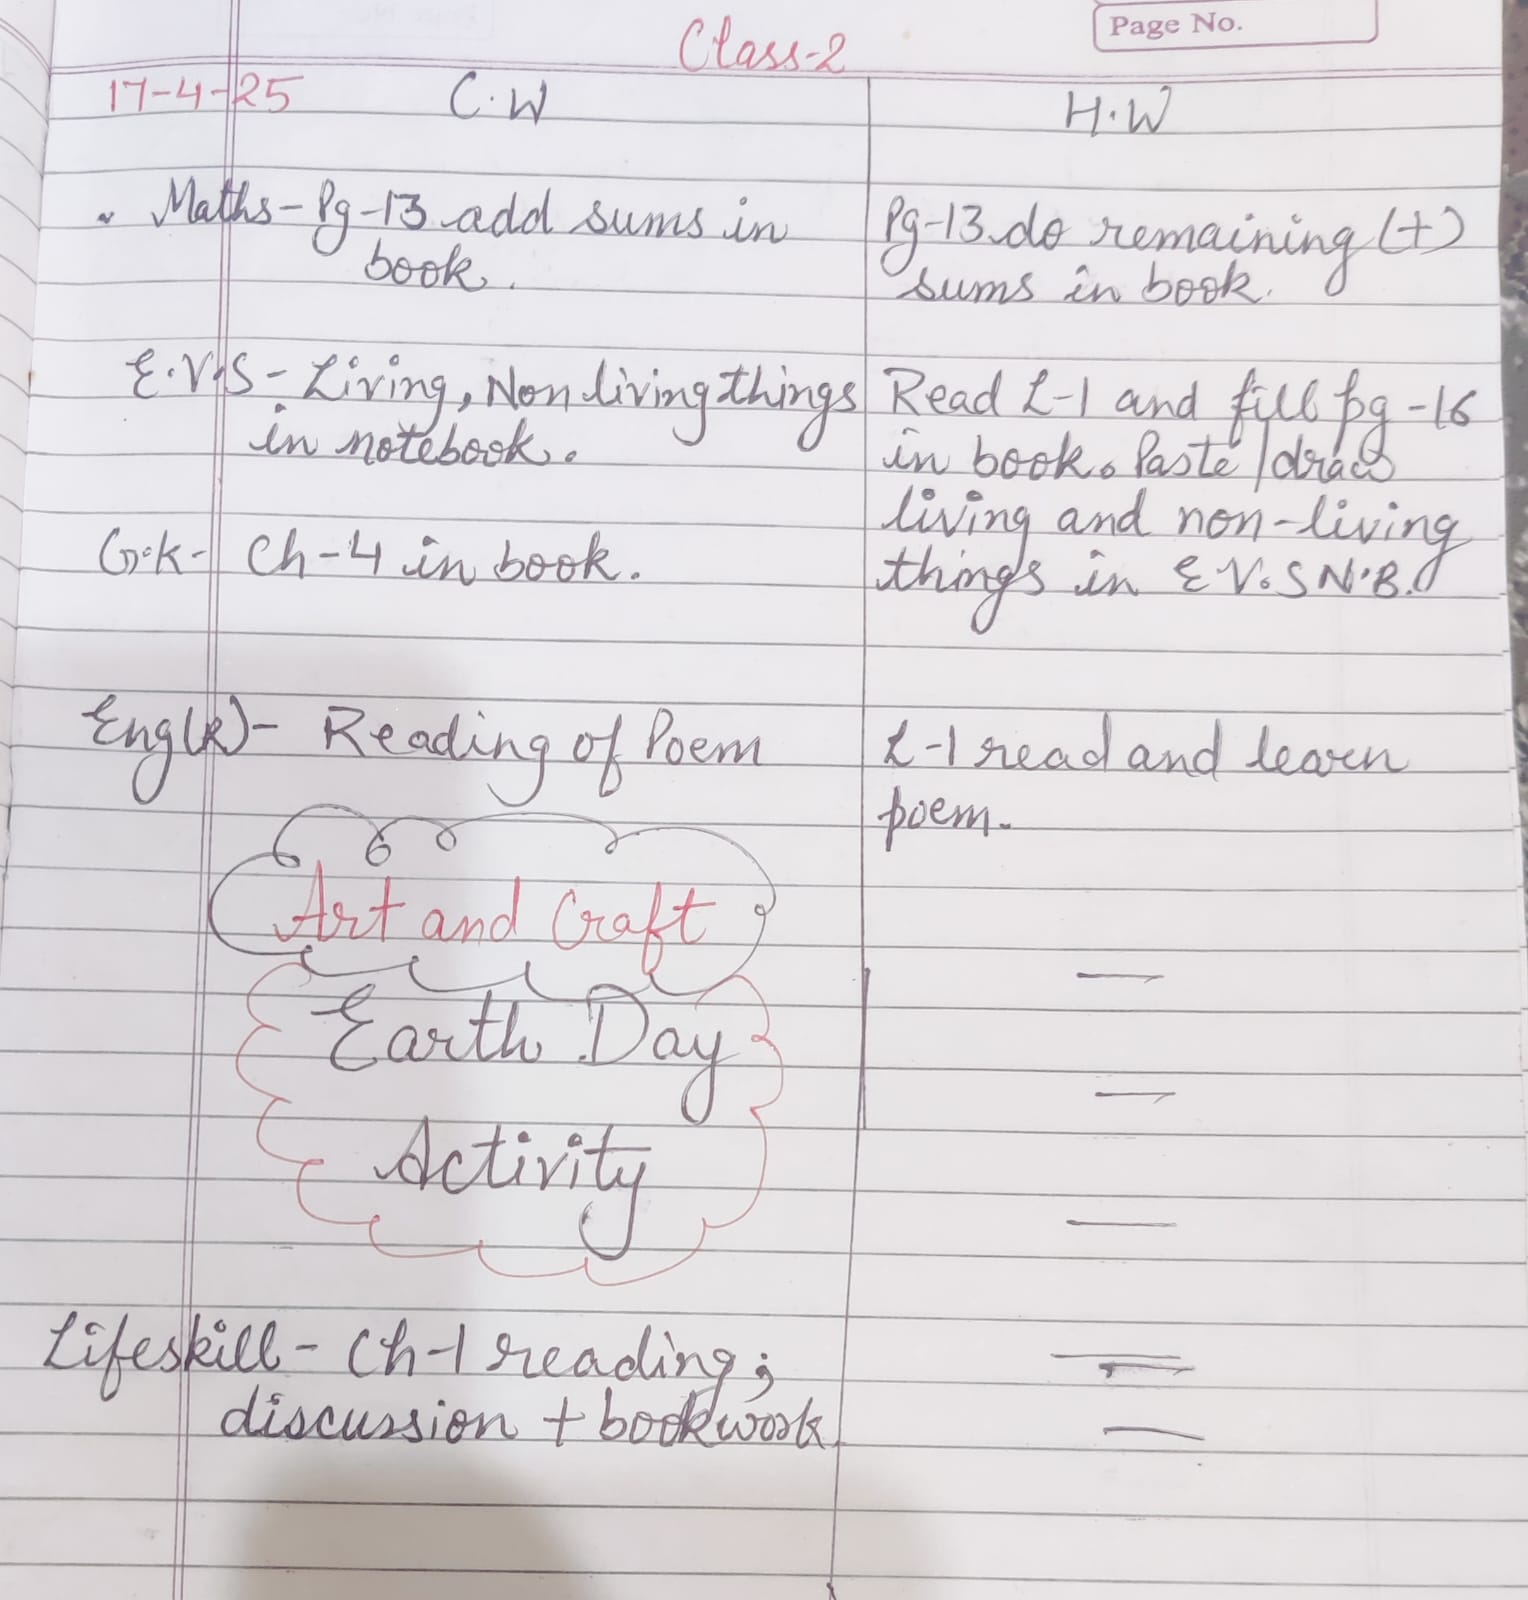 Page No.
Class-2
17-4-25 C.W H.W
Maths - Pg-13 add sums in
book.
Pg-13 do remaining (+)
sums in book.
E.V.S - Living, Non living things
in notebook.
Read L-1 and fill pg-16
in book. Paste/draw
living and non-living
things in E.V.S N.B.
G.K- Ch-4 in book.
Eng(R)- Reading of Poem
L-1 read and learn
poem.
Art and Craft
Earth Day
Activity
Lifeskill- Ch-1 reading;
discussion + bookwork